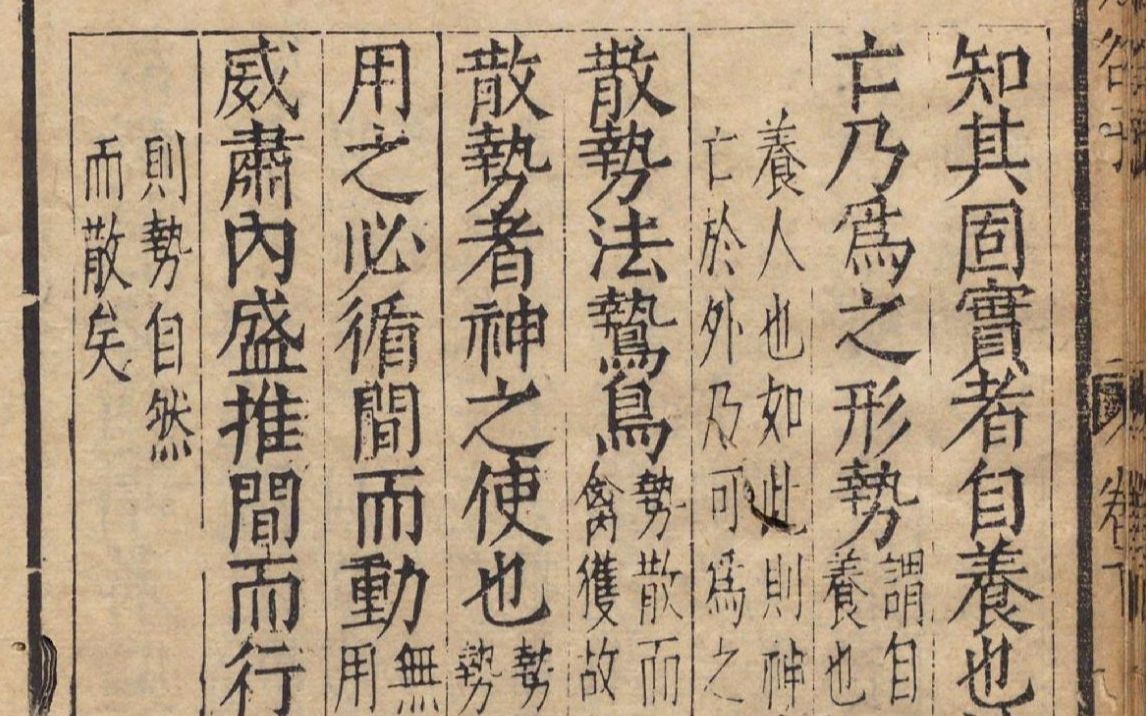 知其固實者自養也
亡乃爲之形勢
謂自
養也
養人也如此則神
亡於外乃可爲之
散勢法鷙鳥
勢散而
禽獲故
散勢者神之使也
勢
勢
用之必循間而動
無
用
威肅內盛推間而行
則勢自然
而散矣